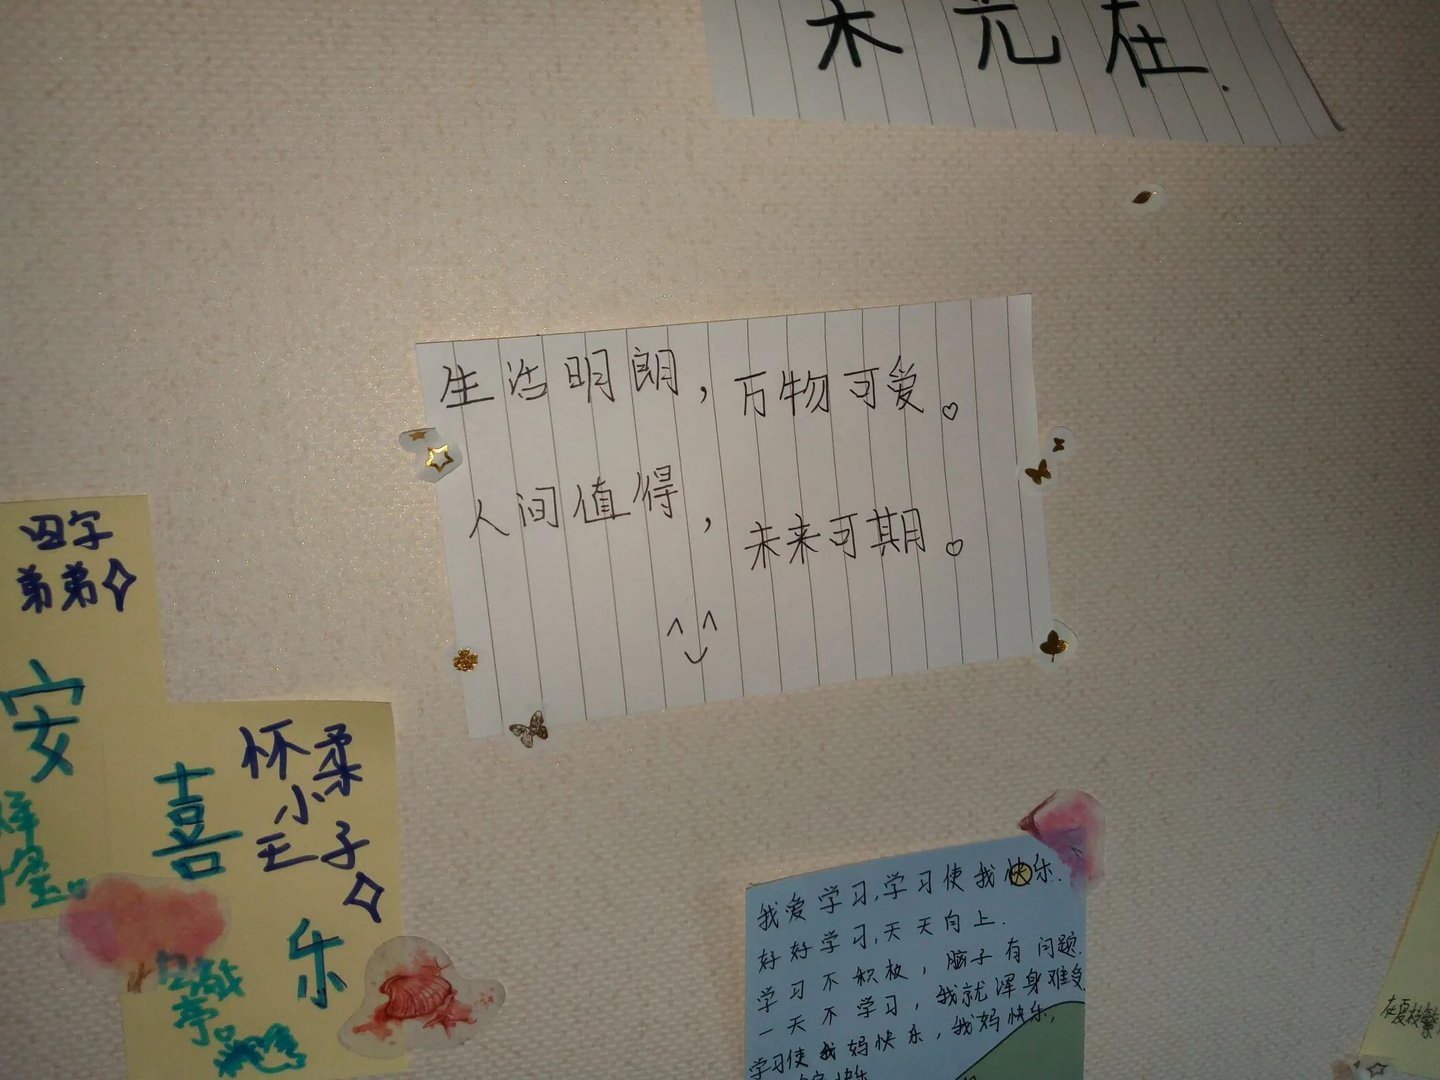 未元在.
生活明朗，万物可爱。
人间值得，未来可期。
四字
弟弟
安
喜
乐
怀柔
小
王子
我爱学习,学习使我快乐.
好好学习,天天向上.
学习不积极，脑子有问题.
一天不学习，我就浑身难受
学习使我妈快乐，我妈快乐，